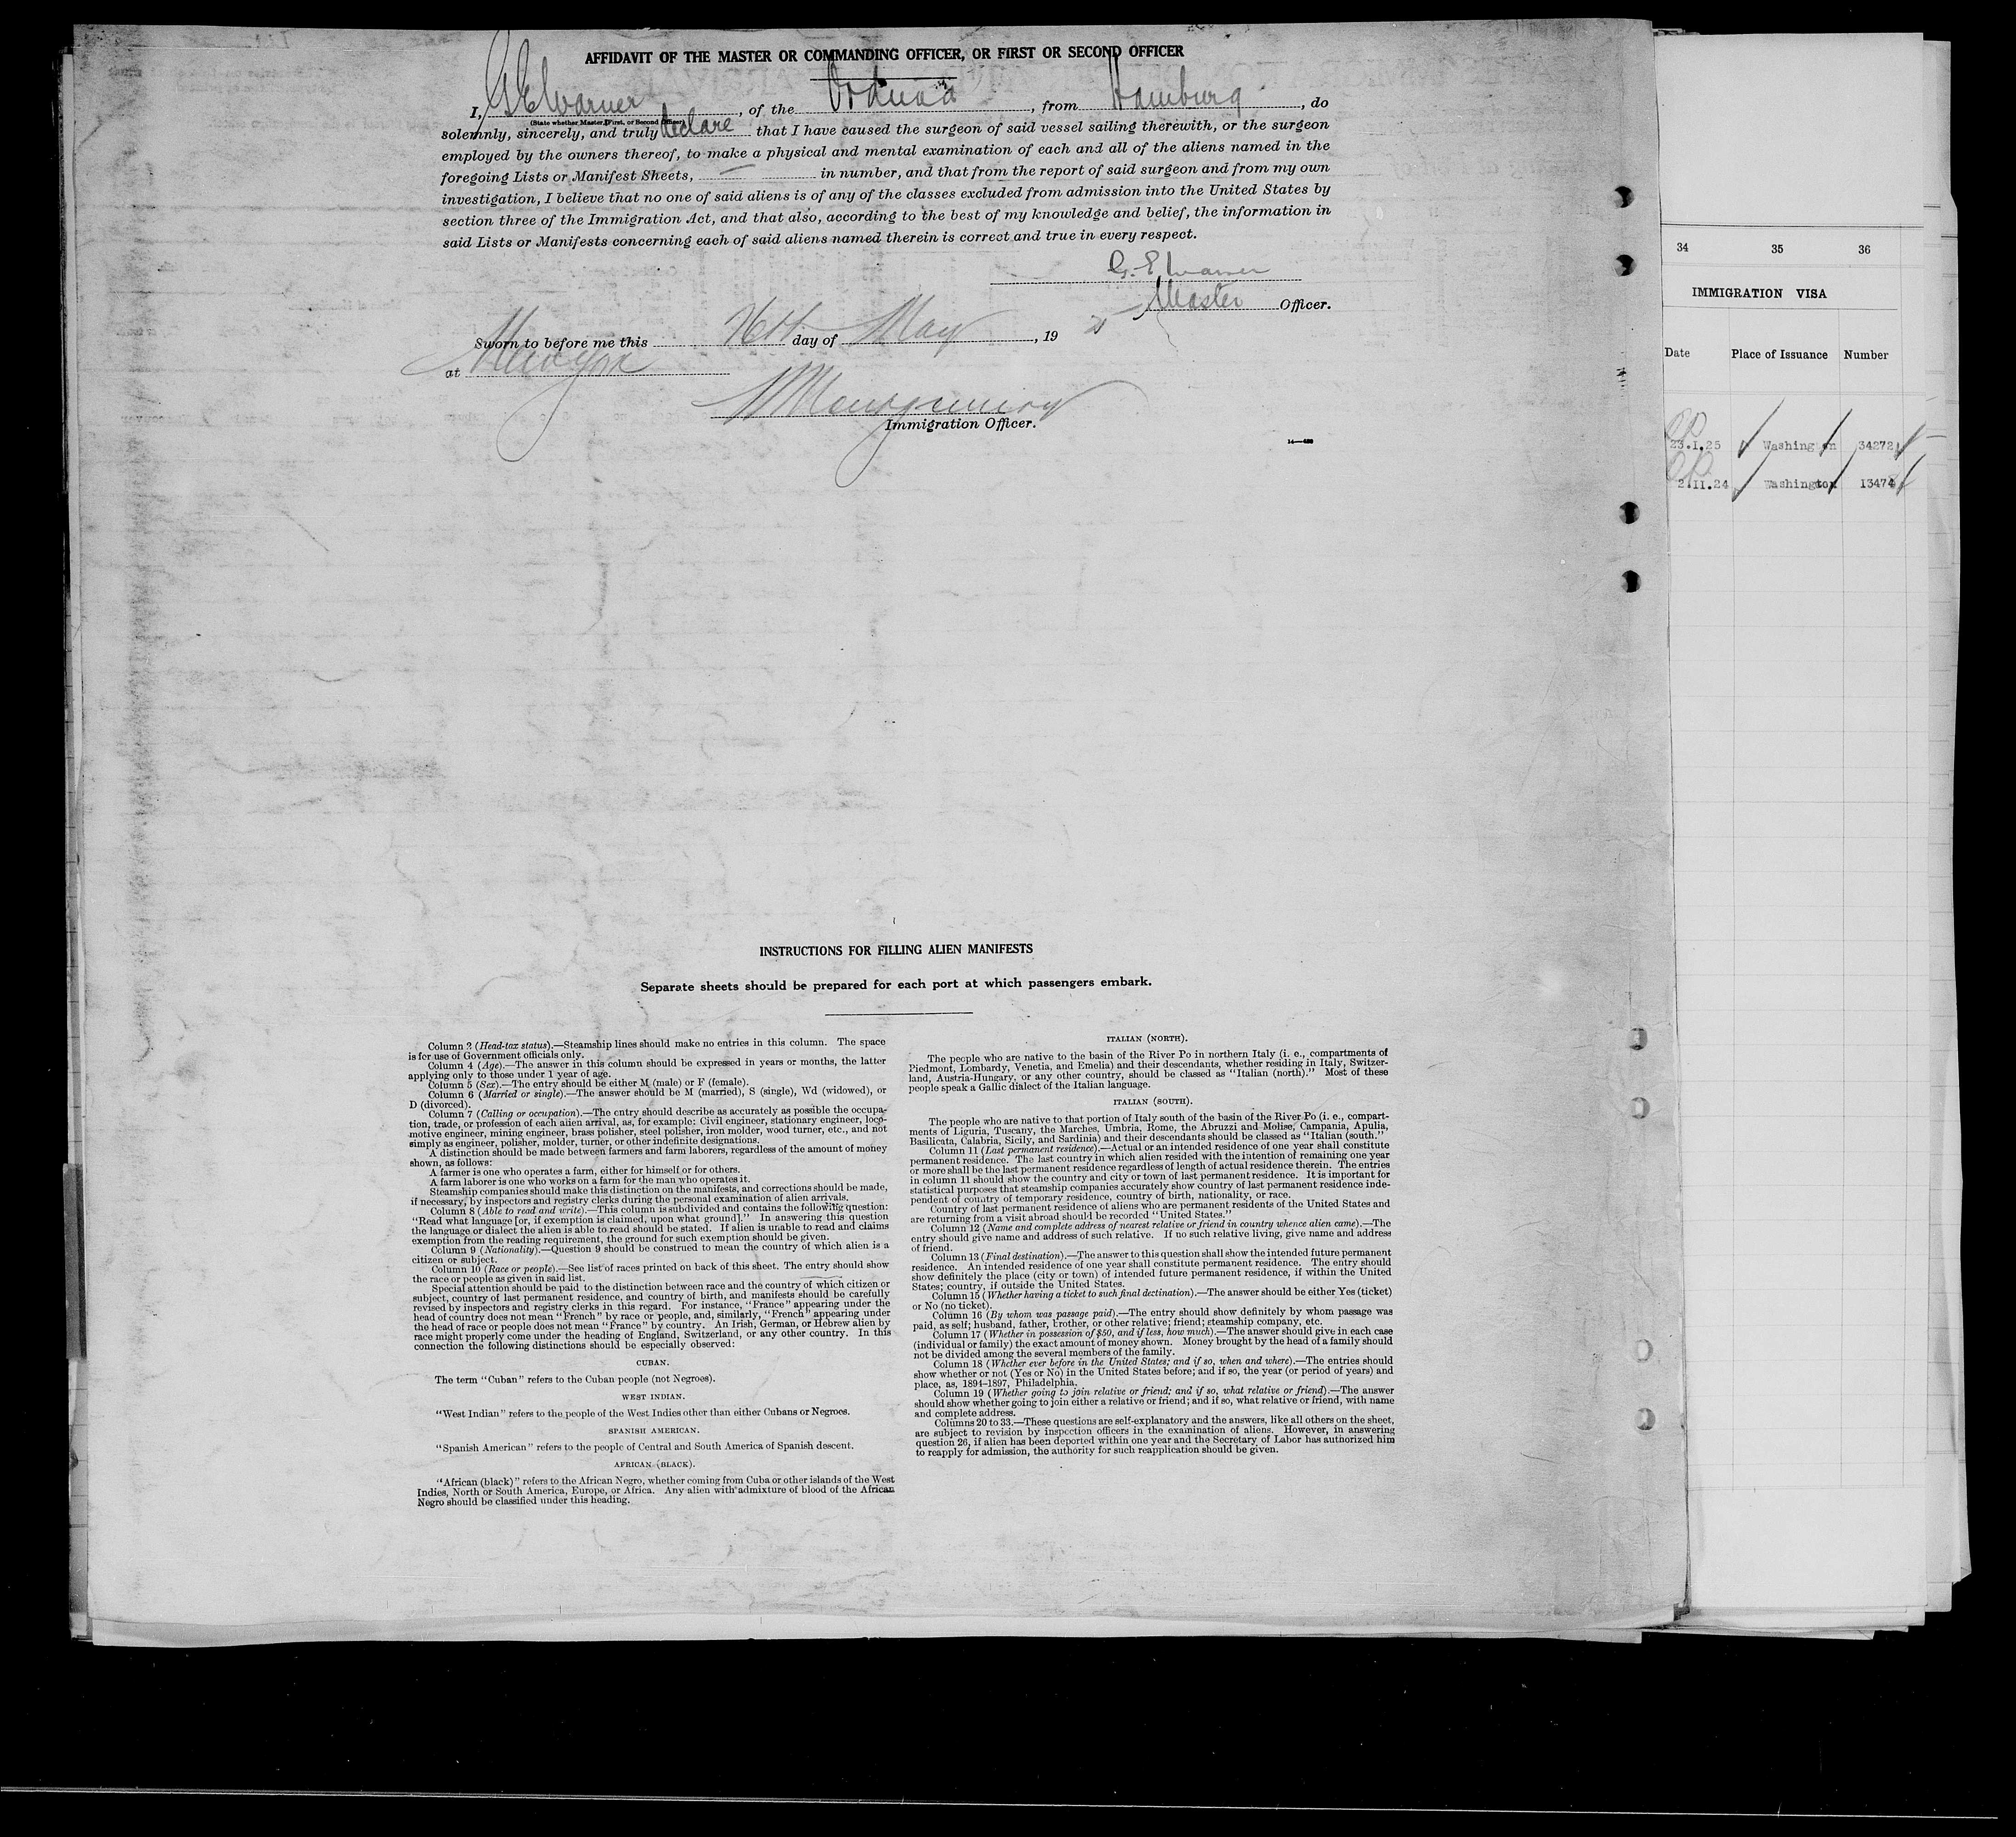 AFFIDAVIT OF THE MASTER OR COMMANDING OFFICER, OR FIRST OR SECOND OFFICER
I, G E Warner, of the Orduna, from Hamburg, do
(State whether Master, First, or Second Officer)
solemnly, sincerely, and truly declare that I have caused the surgeon of said vessel sailing therewith, or the surgeon
employed by the owners thereof, to make a physical and mental examination of each and all of the aliens named in the
foregoing Lists or Manifest Sheets, in number, and that from the report of said surgeon and from my own
investigation, I believe that no one of said aliens is of any of the classes excluded from admission into the United States by
section three of the Immigration Act, and that also, according to the best of my knowledge and belief, the information in
said Lists or Manifests concerning each of said aliens named therein is correct and true in every respect.
G. E. Warner
Master Officer.
Sworn to before me this day of May, 19
at New York
Montgomery
Immigration Officer.
INSTRUCTIONS FOR FILLING ALIEN MANIFESTS
Separate sheets should be prepared for each port at which passengers embark.
Column 3 (Head-tax status).—Steamship lines should make no entries in this column. The space
is for use of Government officials only.
Column 4 (Age).—The answer in this column should be expressed in years or months, the latter
applying only to those under 1 year of age.
Column 5 (Sex).—The entry should be either M (male) or F (female).
Column 6 (Married or single).—The answer should be M (married), S (single), Wd (widowed), or
D (divorced).
Column 7 (Calling or occupation).—The entry should describe as accurately as possible the occupa-
tion, trade, or profession of each alien arrival, as, for example: Civil engineer, stationary engineer, loco-
motive engineer, mining engineer, brass polisher, steel polisher, iron molder, wood turner, etc., and not
simply as engineer, polisher, molder, turner, or other indefinite designations.
A distinction should be made between farmers and farm laborers, regardless of the amount of money
shown, as follows:
A farmer is one who operates a farm, either for himself or for others.
A farm laborer is one who works on a farm for the man who operates it.
Steamship companies should make this distinction on the manifests, and corrections should be made,
if necessary, by inspectors and registry clerks during the personal examination of alien arrivals.
Column 8 (Able to read and write).—This column is subdivided and contains the following question:
"Read what language [or, if exemption is claimed, upon what ground]." In answering this question
the language or dialect the alien is able to read should be stated. If alien is unable to read and claims
exemption from the reading requirement, the ground for such exemption should be given.
Column 9 (Nationality).—Question 9 should be construed to mean the country of which alien is a
citizen or subject.
Column 10 (Race or people).—See list of races printed on back of this sheet. The entry should show
the race or people as given in said list.
Special attention should be paid to the distinction between race and the country of which citizen or
subject, country of last permanent residence, and country of birth, and manifests should be carefully
revised by inspectors and registry clerks in this regard. For instance, "France" appearing under the
head of country does not mean "French" by race or people, and, similarly, "French" appearing under
the head of race or people does not mean "France" by country. An Irish, German, or Hebrew alien by
race might properly come under the heading of England, Switzerland, or any other country. In this
connection the following distinctions should be especially observed:
CUBAN.
The term "Cuban" refers to the Cuban people (not Negroes).
WEST INDIAN.
"West Indian" refers to the people of the West Indies other than either Cubans or Negroes.
SPANISH AMERICAN.
"Spanish American" refers to the people of Central and South America of Spanish descent.
AFRICAN (BLACK).
"African (black)" refers to the African Negro, whether coming from Cuba or other islands of the West
Indies, North or South America, Europe, or Africa. Any alien with admixture of blood of the African
Negro should be classified under this heading.
ITALIAN (NORTH).
The people who are native to the basin of the River Po in northern Italy (i. e., compartments of
Piedmont, Lombardy, Venetia, and Emelia) and their descendants, whether residing in Italy, Switzer-
land, Austria-Hungary, or any other country, should be classed as "Italian (north)." Most of these
people speak a Gallic dialect of the Italian language.
ITALIAN (SOUTH).
The people who are native to that portion of Italy south of the basin of the River Po (i. e., compart-
ments of Liguria, Tuscany, the Marches, Umbria, Rome, the Abruzzi and Molise, Campania, Apulia,
Basilicata, Calabria, Sicily, and Sardinia) and their descendants should be classed as "Italian (south."
Column 11 (Last permanent residence).—Actual or an intended residence of one year shall constitute
permanent residence. The last country in which alien resided with the intention of remaining one year
or more shall be the last permanent residence regardless of length of actual residence therein. The entries
in column 11 should show the country and city or town of last permanent residence. It is important for
statistical purposes that steamship companies accurately show country of last permanent residence inde-
pendent of country of temporary residence, country of birth, nationality, or race.
Country of last permanent residence of aliens who are permanent residents of the United States and
are returning from a visit abroad should be recorded "United States."
Column 12 (Name and complete address of nearest relative or friend in country whence alien came).—The
entry should give name and address of such relative. If no such relative living, give name and address
of friend.
Column 13 (Final destination).—The answer to this question shall show the intended future permanent
residence. An intended residence of one year shall constitute permanent residence. The entry should
show definitely the place (city or town) of intended future permanent residence, if within the United
States; country, if outside the United States.
Column 15 (Whether having a ticket to such final dectination).—The answer should be either Yes (ticket)
or No (no ticket).
Column 16 (By whom was passage paid).—The entry should show definitely by whom passage was
paid, as self; husband, father, brother, or other relative; friend; steamship company, etc.
Column 17 (Whether in possession of $50, and if less, how much).—The answer should give in each case
(individual or family) the exact amount of money shown. Money brought by the head of a family should
not be divided among the several members of the family.
Column 18 (Whether ever before in the United States; and if so, when and where).—The entries should
show whether or not (Yes or No) in the United States before; and if so, the year (or period of years) and
place, as, 1894-1897, Philadelphia.
Column 19 (Whether going to join relative or friend; and if so, what relative or friend).—The answer
should show whether going to join either a relative or friend; and if so, what relative or friend, with name
and complete address.
Columns 20 to 33.—These questions are self-explanatory and the answers, like all others on the sheet,
are subject to revision by inspection officers in the examination of aliens. However, in answering
question 26, if alien has been deported within one year and the Secretary of Labor has authorized him
to reapply for admission, the authority for such reapplication should be given.
34 35 36
IMMIGRATION VISA
Date Place of Issuance Number
23.I.25 Washington 34272
2.II.24 Washington 13474